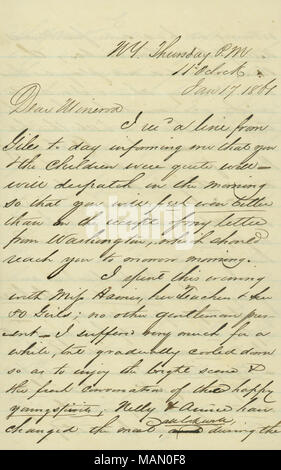 N.Y. Thursday P.M
11 O'clock
Jan 17. 1861
Dear Minerva
I rec'd a line from
Giles to day informing me that you
& the children were quite well—
will despatch in the morning
so that you will feel even better
than on the receipt of my letter
from Washington, which should
reach you to morrow morning.
I spent this evening
with Miss Haines, her Teachers & her
50 Girls; no other gentleman pre-
sent—I suffered very much for a
while, but gradually cooled down
so as to enjoy the bright scene &
the fresh conversation of the happy
young spirits, Nelly & Annie have
changed the most, during the
alamy
Image ID: MAN0F8
www.alamy.com